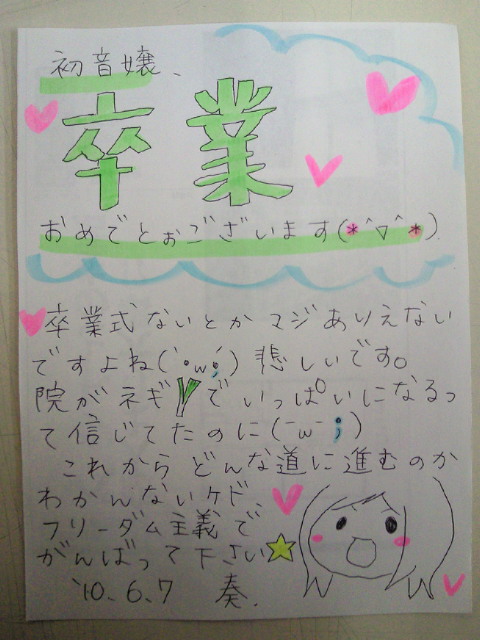 初音嬢、
卒業
おめでとぉございます(*´▽`*)
卒業式ないとかマジありえない
ですよね(´・ω;`)悲しいです。
院がネギでいっぱいになるっ
て信じてたのに(-ω-;)
これからどんな道に進むのか
わかんないケド、
フリーダム主義で
がんばって下さい☆
'10.6.7 奏.